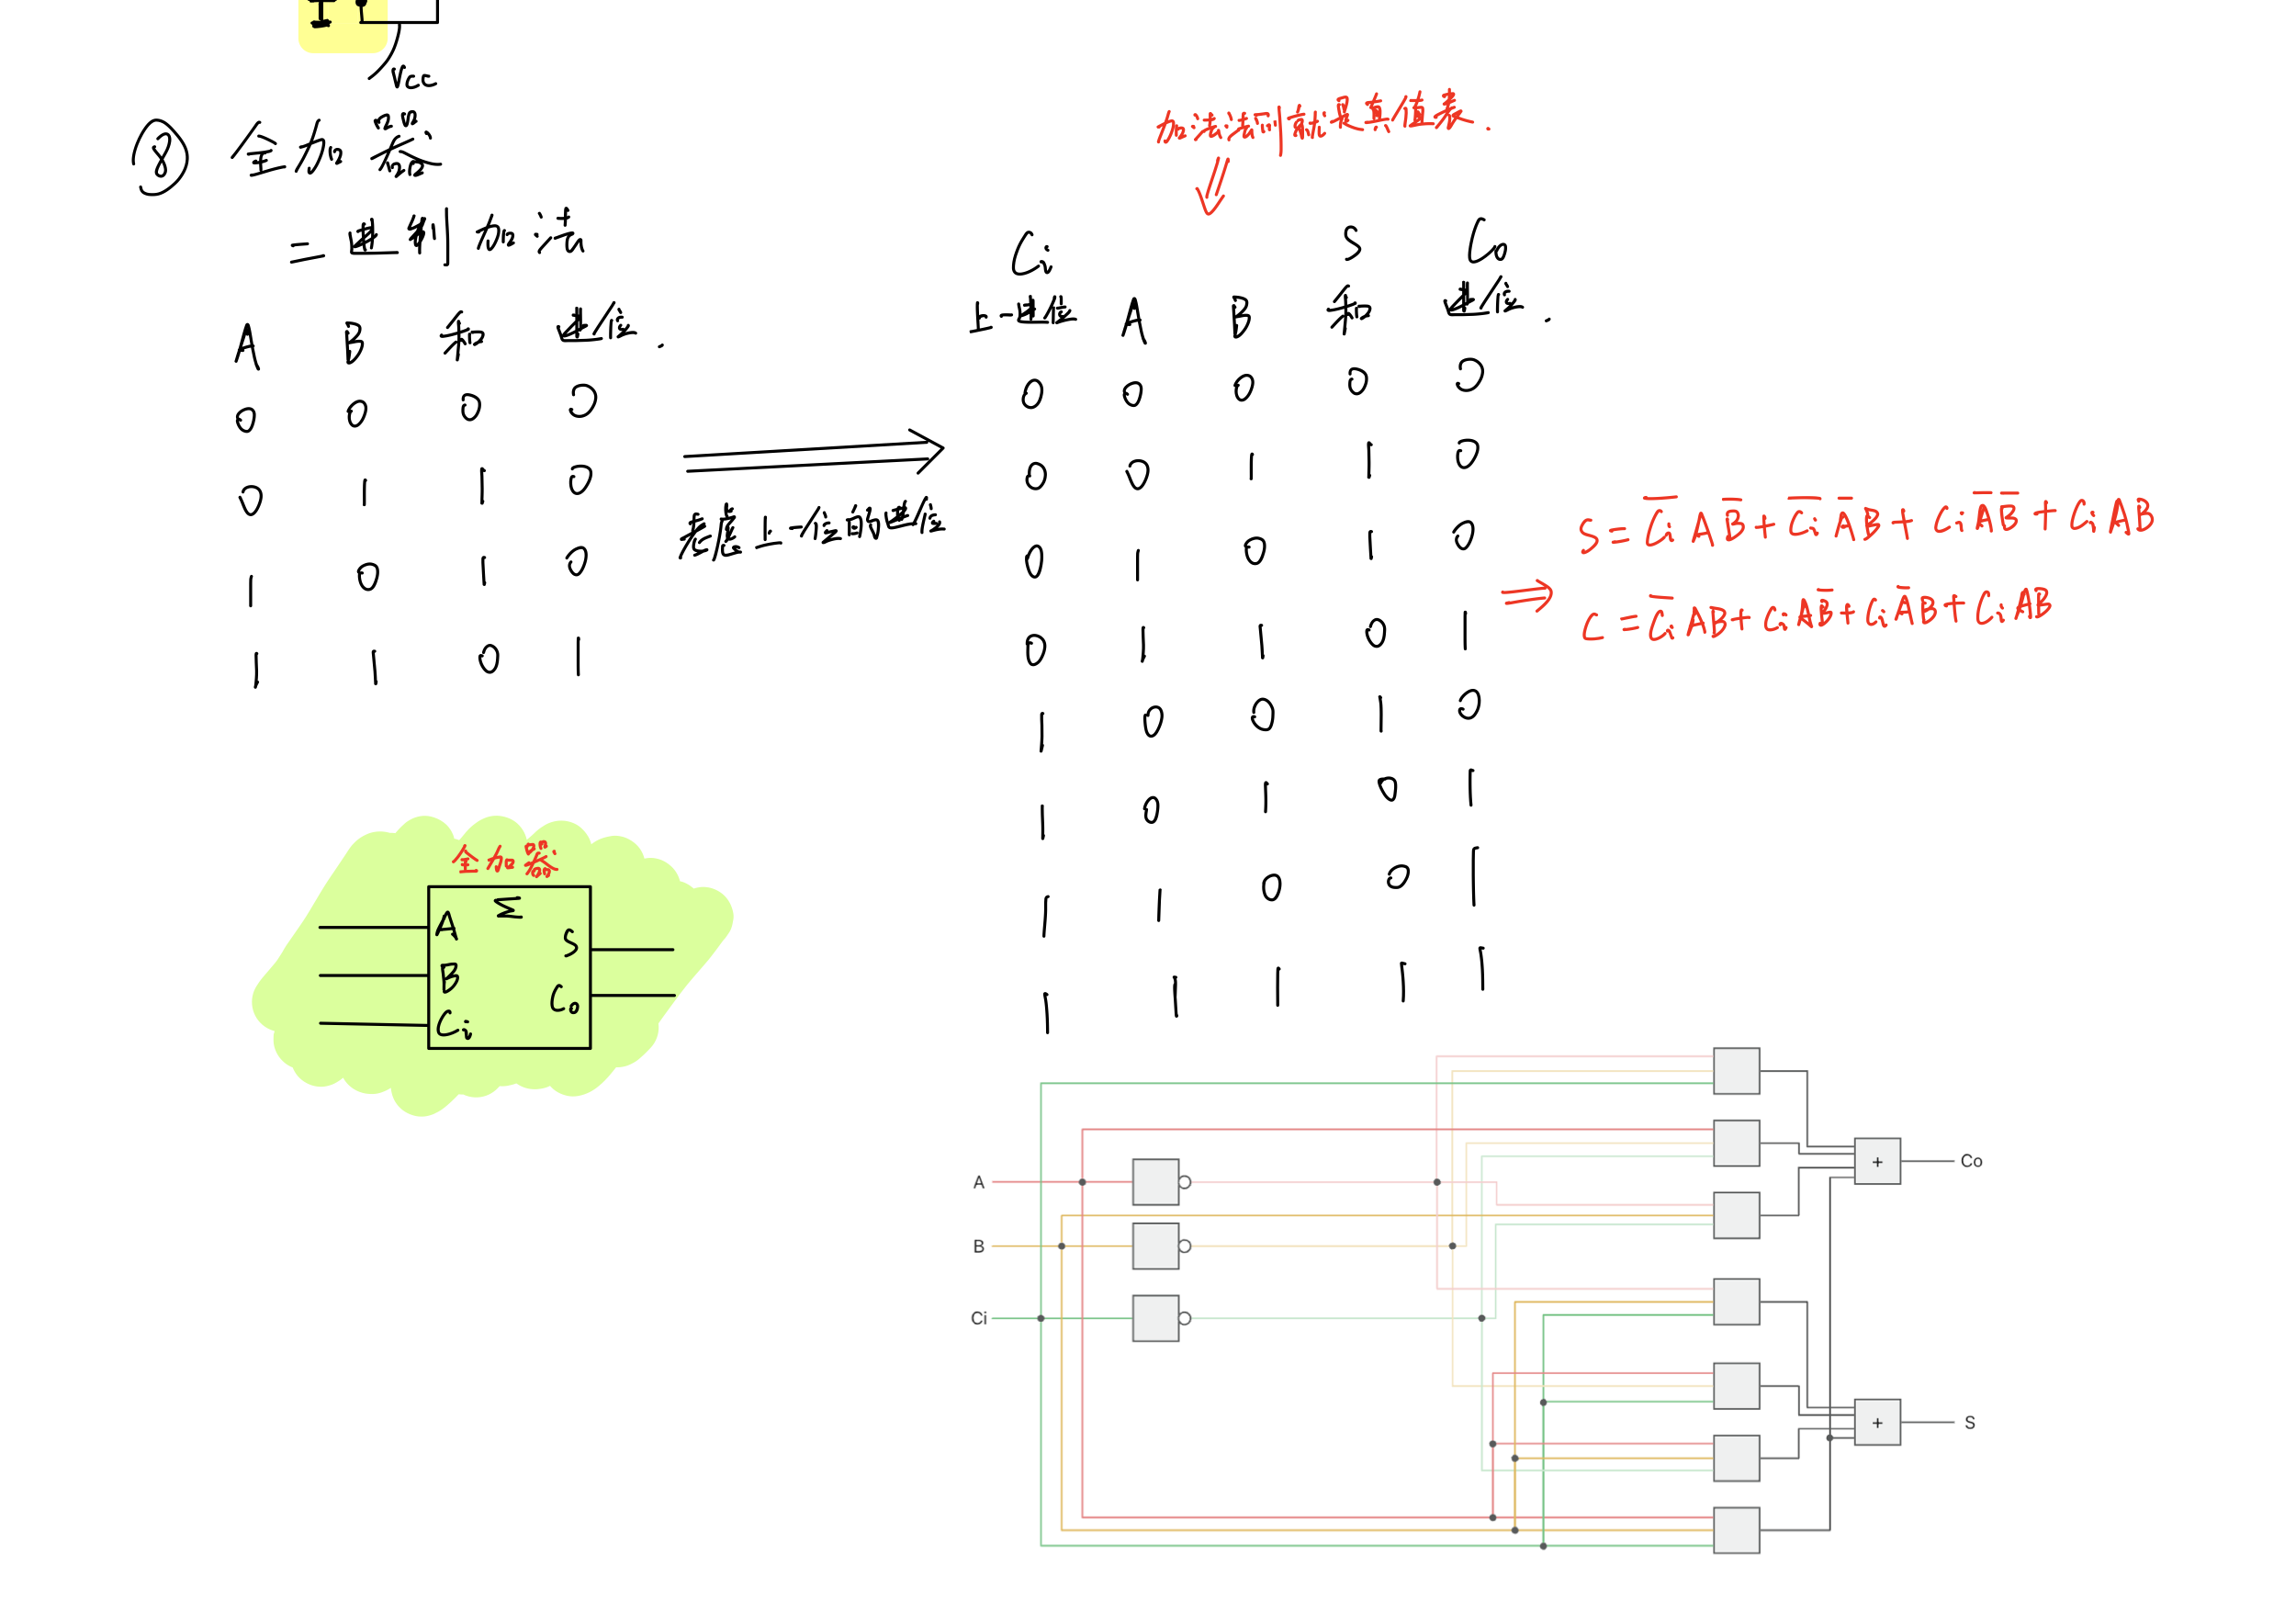 Vcc
⑧ 全加器
二进制加法
A B 和 进位.
0 0 0 0
0 1 1 0
1 0 1 0
1 1 0 1
考虑上一位的进位
加法法则就是真值表.
Ci S Co
上一进位 A B 和 进位.
0 0 0 0 0
0 0 1 1 0
0 1 0 1 0
0 1 1 0 1
1 0 0 1 0
1 0 1 0 1
1 1 0 0 1
1 1 1 1 1
⇒ S = C̅i̅ A B̅ + C̅i̅ A̅ B + Ci A̅ B̅ + Ci A B
C = C̅i̅ A B + Ci A B̅ + Ci A̅ B + Ci A B
全加器
Σ
A
S
B
Co
Ci
A
B
Ci
+ Co
+ S